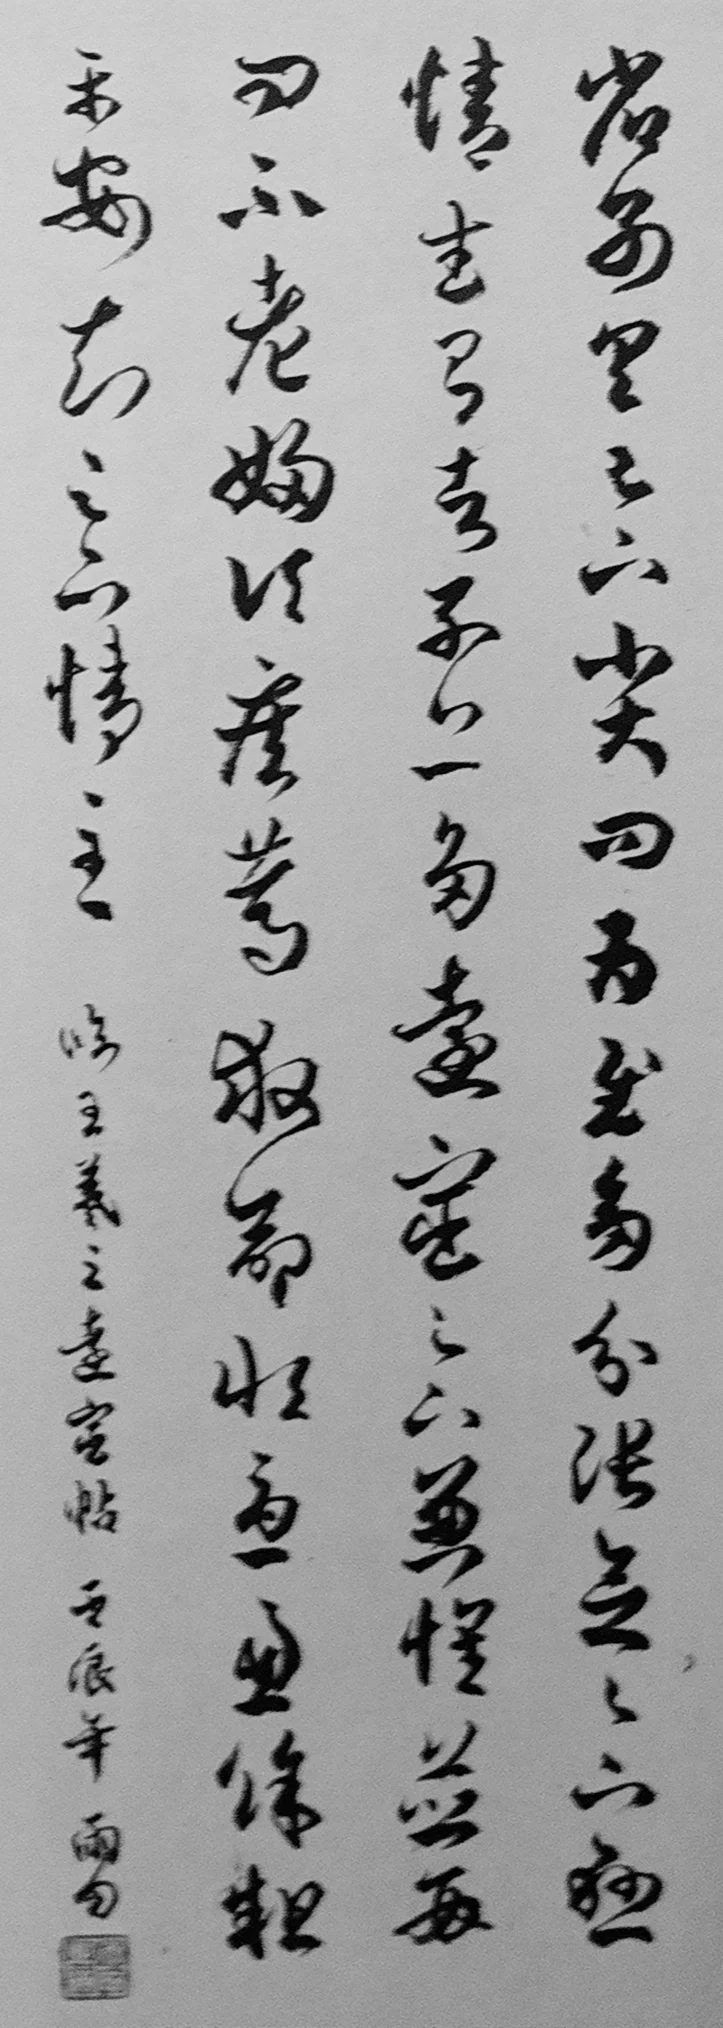 省別具足下小大問為慰多分張念足下懸
情武昌諸子亦多遠宦足下兼懷並數
問不老婦頃疾篤救命恒憂慮餘粗
平安知足下情至 臨王羲之遠宦帖 壬辰年 雨